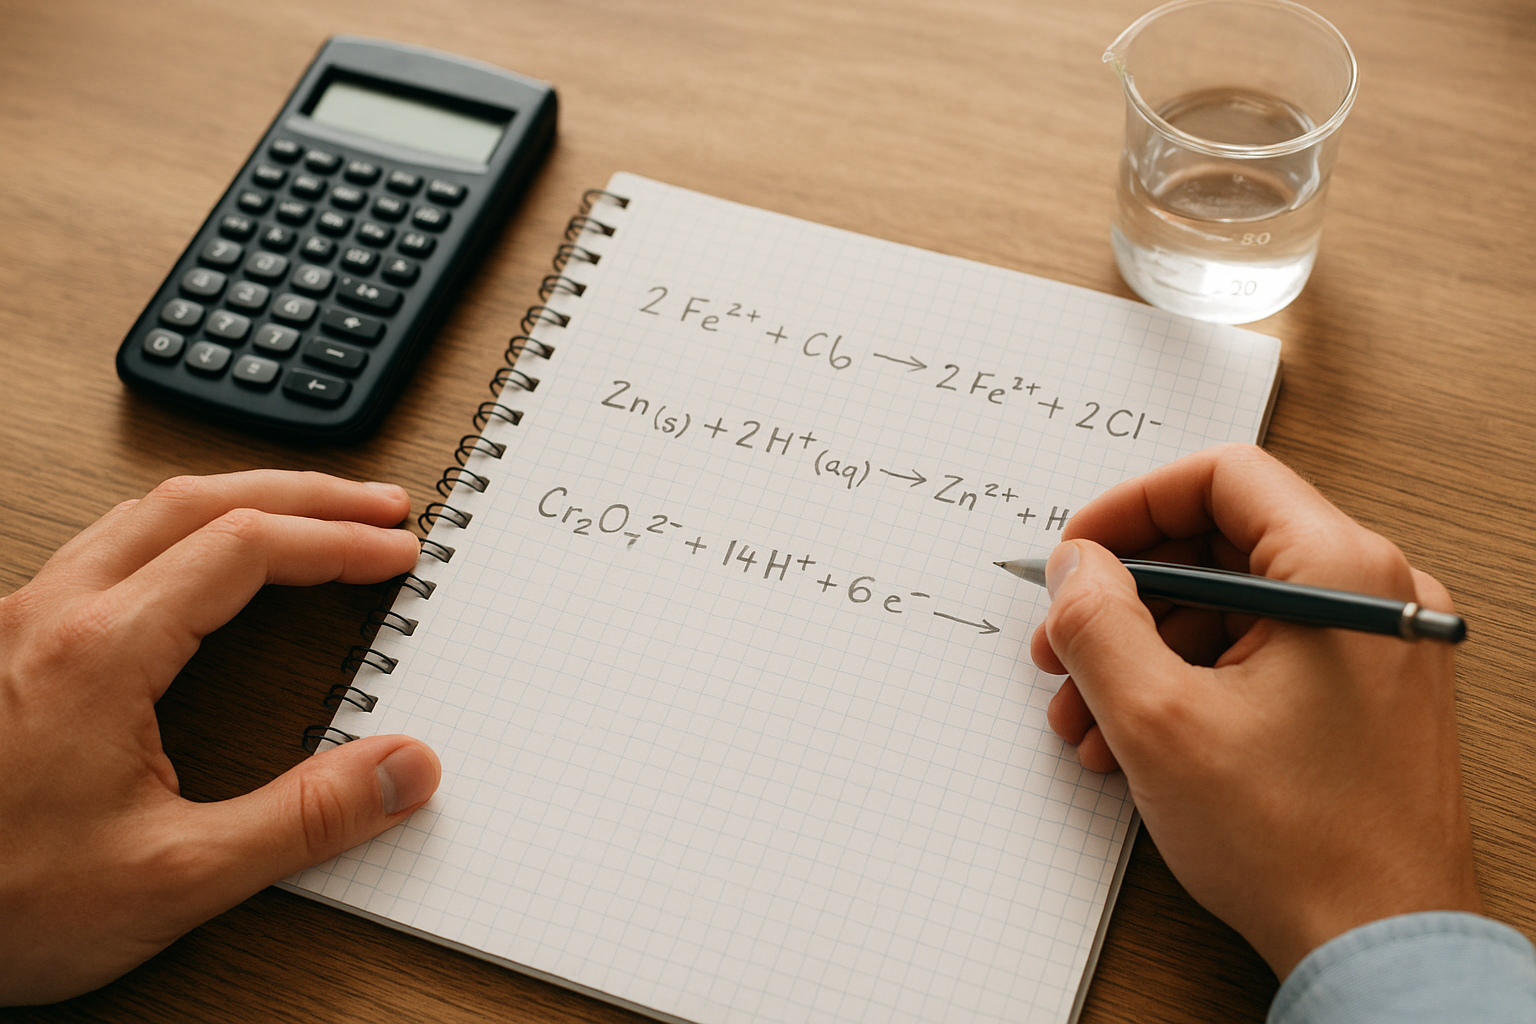 2 Fe²⁺ + Cb → 2 Fe²⁺ + 2 Cl⁻
Zn(s) + 2H⁺(aq) → Zn²⁺ + H
Cr₂O₇²⁻ + 14H⁺ + 6e⁻ →
80
20